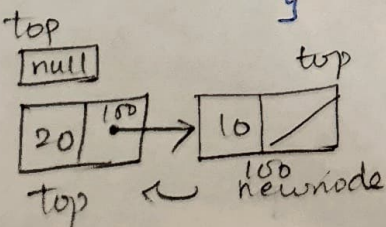 top
null
top
20 100 10
100
top newnode